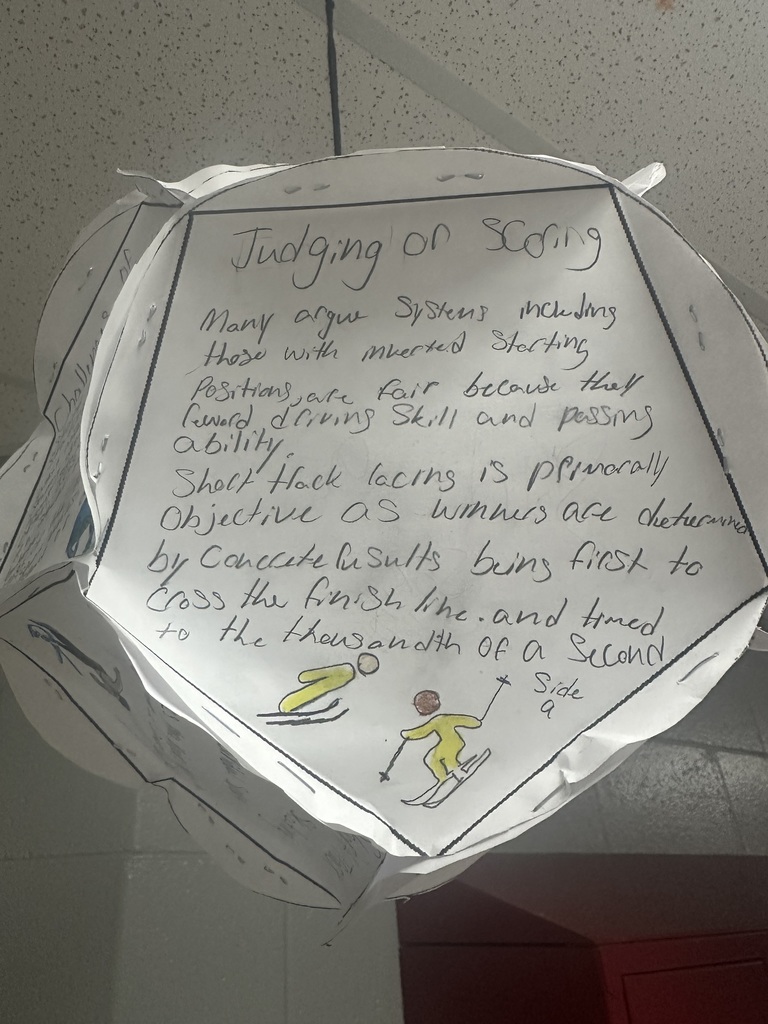 Judging or Scoring
Many argue Systems including
those with inverted Starting
Positions, are fair because they
reward driving Skill and passing
ability.
Short track racing is primorally
Objective as winners are determined
by Concrete Results being first to
Cross the finish line. and timed
to the thousandth of a Second
Side
9